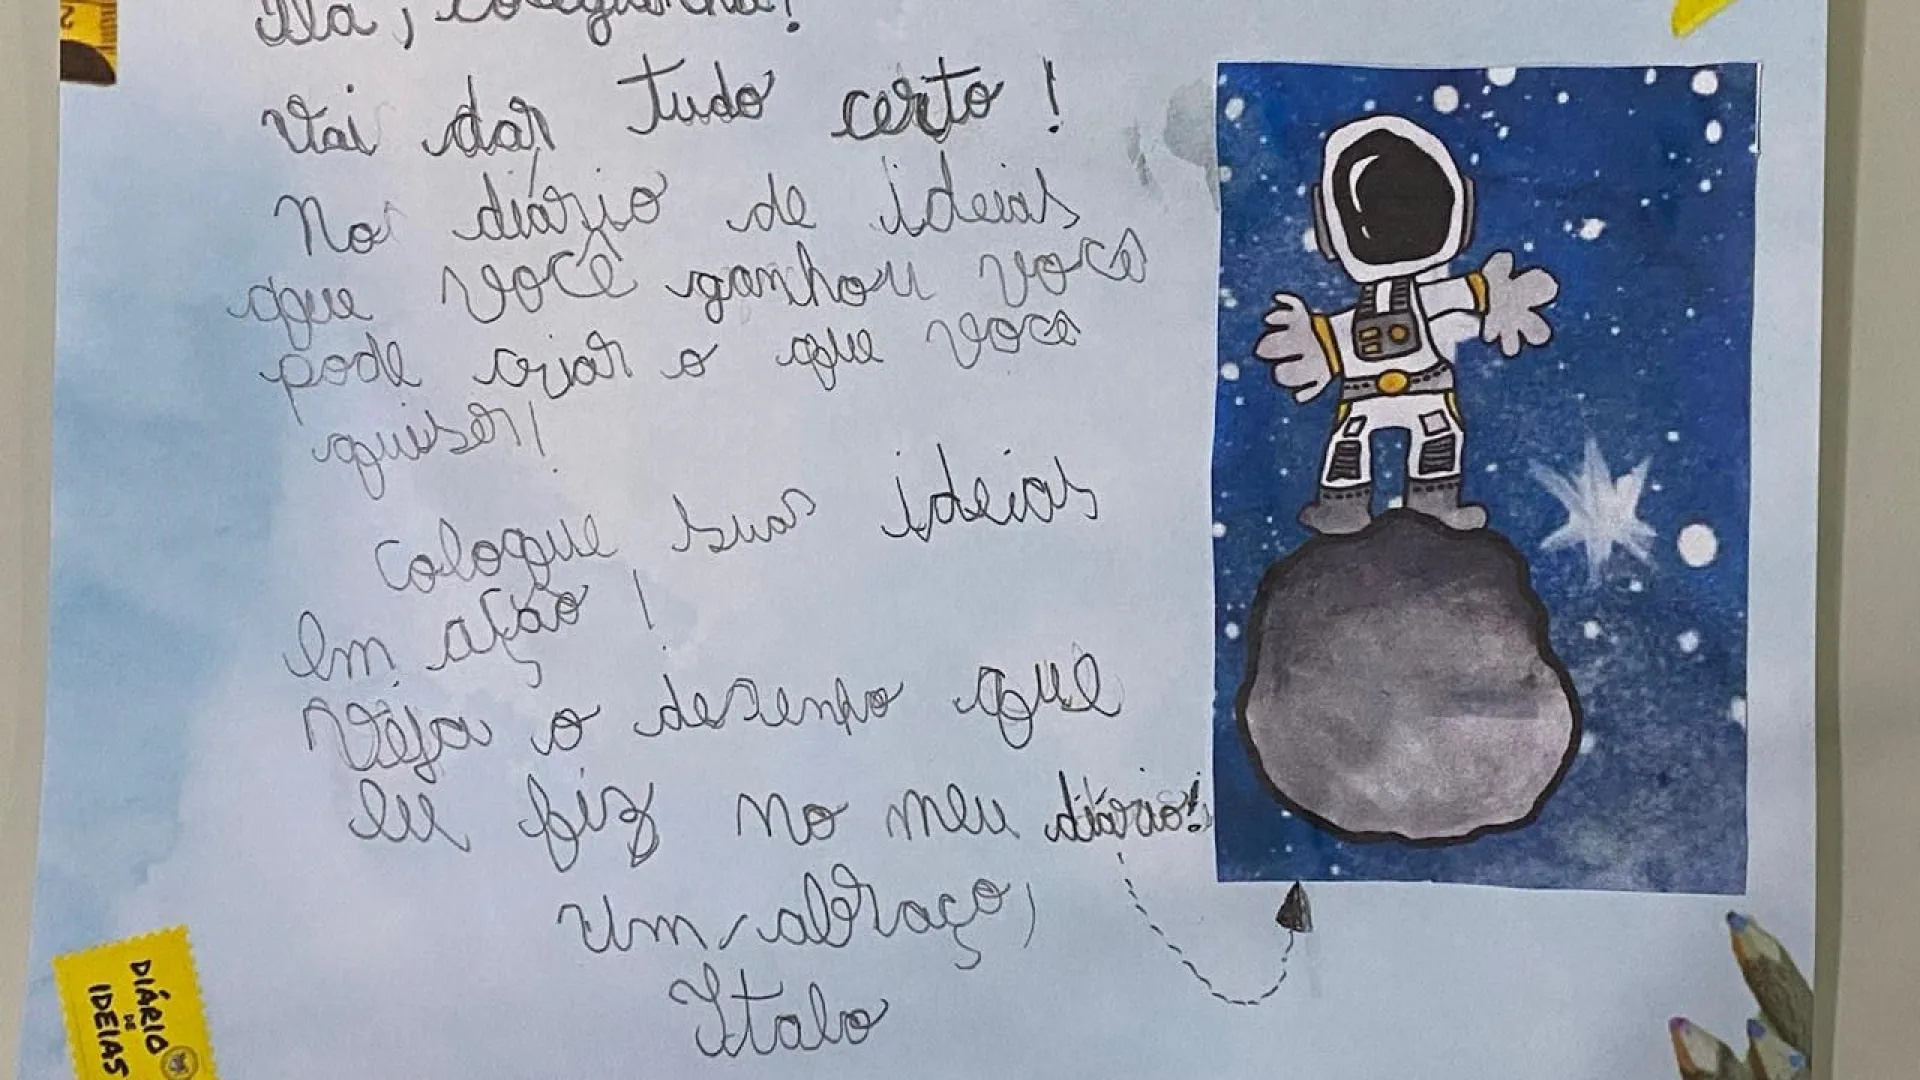 Olá, coleguinha!
Vai dar tudo certo!
No diário de ideias
que você ganhou você
pode criar o que você
quiser!
Coloque suas ideias
em ação!
Veja o desenho que
eu fiz no meu diário!
Um abraço,
Italo
DIÁRIO
DE
IDEIAS